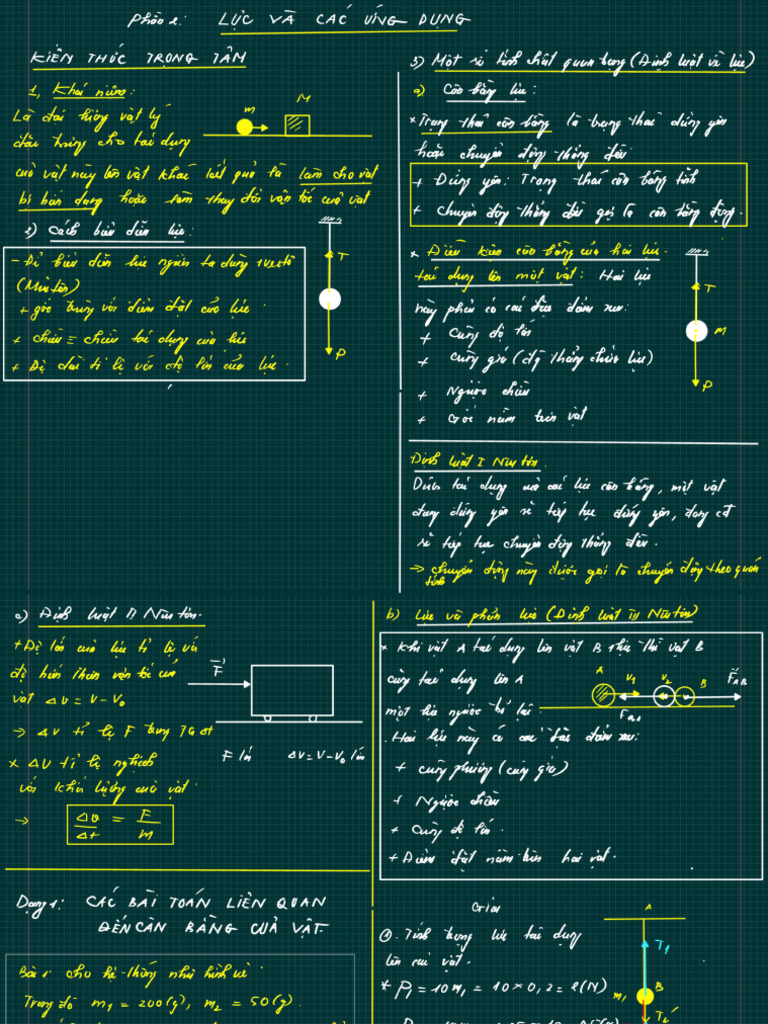 Phần 2: LỰC VÀ CÁC ỨNG DỤNG
KIẾN THỨC TRỌNG TÂM
1, Khái niệm:
m
M
Là đại lượng vật lý
đặc trưng cho tác dụng
của vật này lên vật khác kết quả là làm cho vật
bị biến dạng hoặc làm thay đổi vận tốc của vật
2) Cách biểu diễn lực:
- Để biểu diễn lực người ta dùng vectơ
(Mũi tên)
+ gốc trùng với điểm đặt của lực.
+ chiều ≡ chiều tác dụng của lực
+ Độ dài tỉ lệ với độ lớn của lực.
T
P
3) Một số tính chất quan trọng (Định luật về lực)
a) Cân bằng lực:
* Trạng thái cân bằng là trạng thái đứng yên
hoặc chuyển động thẳng đều.
+ Đứng yên: Trạng thái cân bằng tĩnh
+ chuyển động thẳng đều gọi là cân bằng động.
* Điều kiện cân bằng của hai lực
tác dụng lên một vật: Hai lực
này phải có các đặc điểm sau:
+ Cùng độ lớn
+ Cùng giá (đg thẳng chứa lực)
+ Ngược chiều
+ Gốc nằm trên vật
T
M
P
Định luật I Niu tơn.
Dưới tác dụng của các lực cân bằng, một vật
đang đứng yên sẽ tiếp tục đứng yên, đang cđ
sẽ tiếp tục chuyển động thẳng đều.
→ chuyển động này được gọi là chuyển động theo quán
tính
c) Định luật II Niu tơn.
+ Độ lớn của lực tỉ lệ với
độ biến thiên vận tốc của
vật Δv = v - v₀
→ Δv tỉ lệ F trong TG Δt
* Δv tỉ lệ nghịch
với khối lượng của vật.
→ Δv/Δt = F/m
F
F lớn Δv = v - v₀ lớn
b) Lực và phản lực (Định luật III Niu tơn)
* Khi vật A tác dụng lên vật B thì vật B
cũng tác dụng lên A
một lực ngược trở lại
Hai lực này có các đặc điểm sau:
+ cùng phương (cùng giá)
+ Ngược chiều
+ Cùng độ lớn.
+ Điểm đặt nằm trên hai vật.
A v₁ v₂ B F_AB
F_BA
Dạng 1: CÁC BÀI TOÁN LIÊN QUAN
ĐẾN CÂN BẰNG CỦA VẬT.
Bài 1: cho hệ thống như hình vẽ.
Trong đó m₁ = 200(g), m₂ = 50(g).
Giải
①. Tính trọng lực tác dụng
lên các vật.
* P₁ = 10m₁ = 10 × 0,2 = 2(N)
A
T₁
m₁
B
T₂'